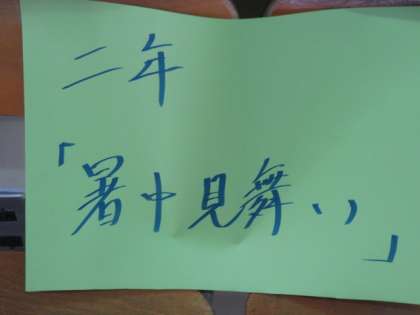 二年
「暑中見舞い」